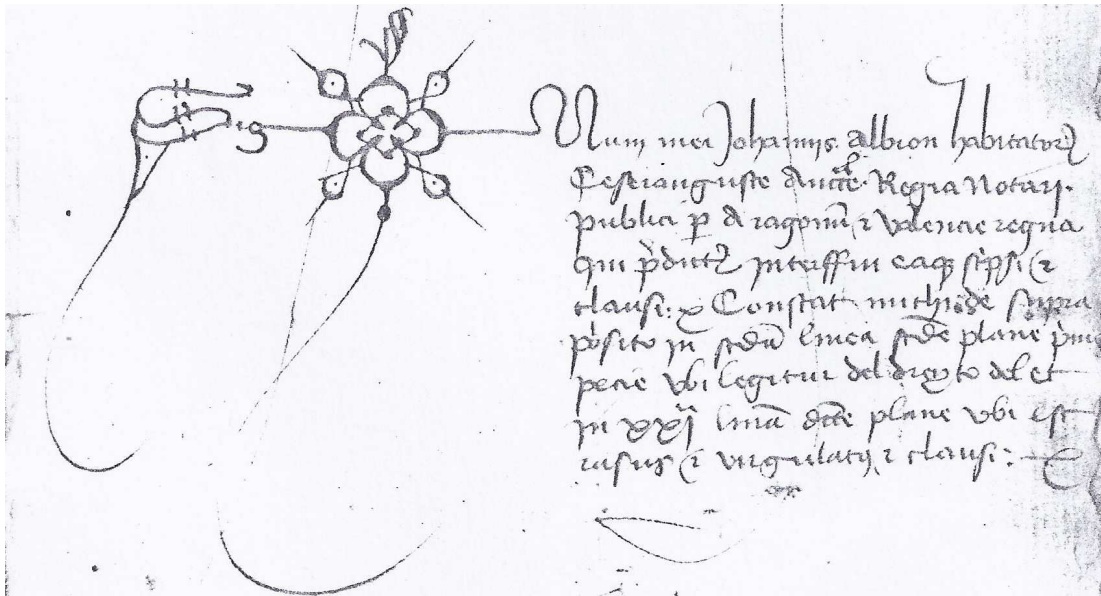 Sig num mei Johannis Albion habitatoris
Cesarauguste Auctte Regia Notarii
publici p Aragonum et Valencie regna
qui predictis interffui eaq scripsi et
clausi: Constat michi de supra
posito in secda linea secde plane prime
pecie ubi legitur del dreyto del et
in XXI linea dicte plane ubi est
rasus et virgulatus et clausi: